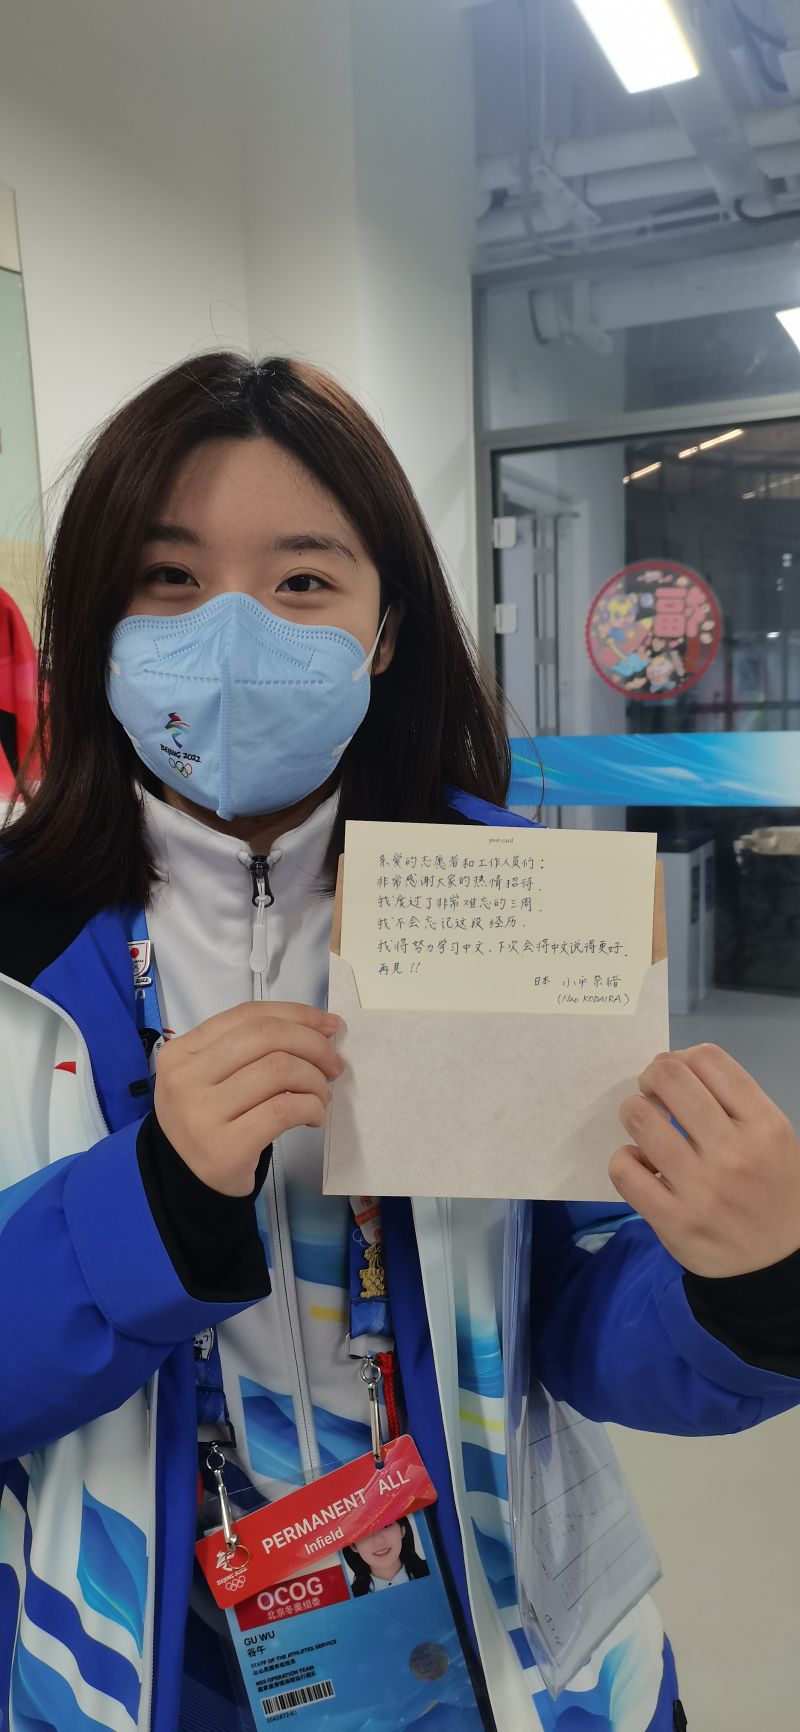 福
BEIJING 2022
post card
亲爱的志愿者和工作人员们：
非常感谢大家的热情招待.
我度过了非常难忘的三周.
我不会忘记这段经历.
我将努力学习中文、下次会将中文说得更好.
再見!!
日本 小平奈緒
(Nao KODAIRA)
PERMANENT ALL
Infield
BEIJING 2022
OCOG
北京冬奥组委
GU WU
谷午
STAFF OF THE ATHLETES SERVICE
NSS OPERATION TEAM